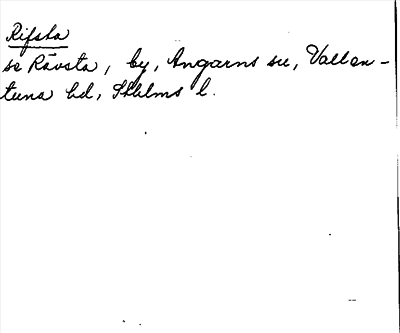 Rifsta
se Råvsta, by, Angarns su, Vallen-
tuna hd, Sthlms l.